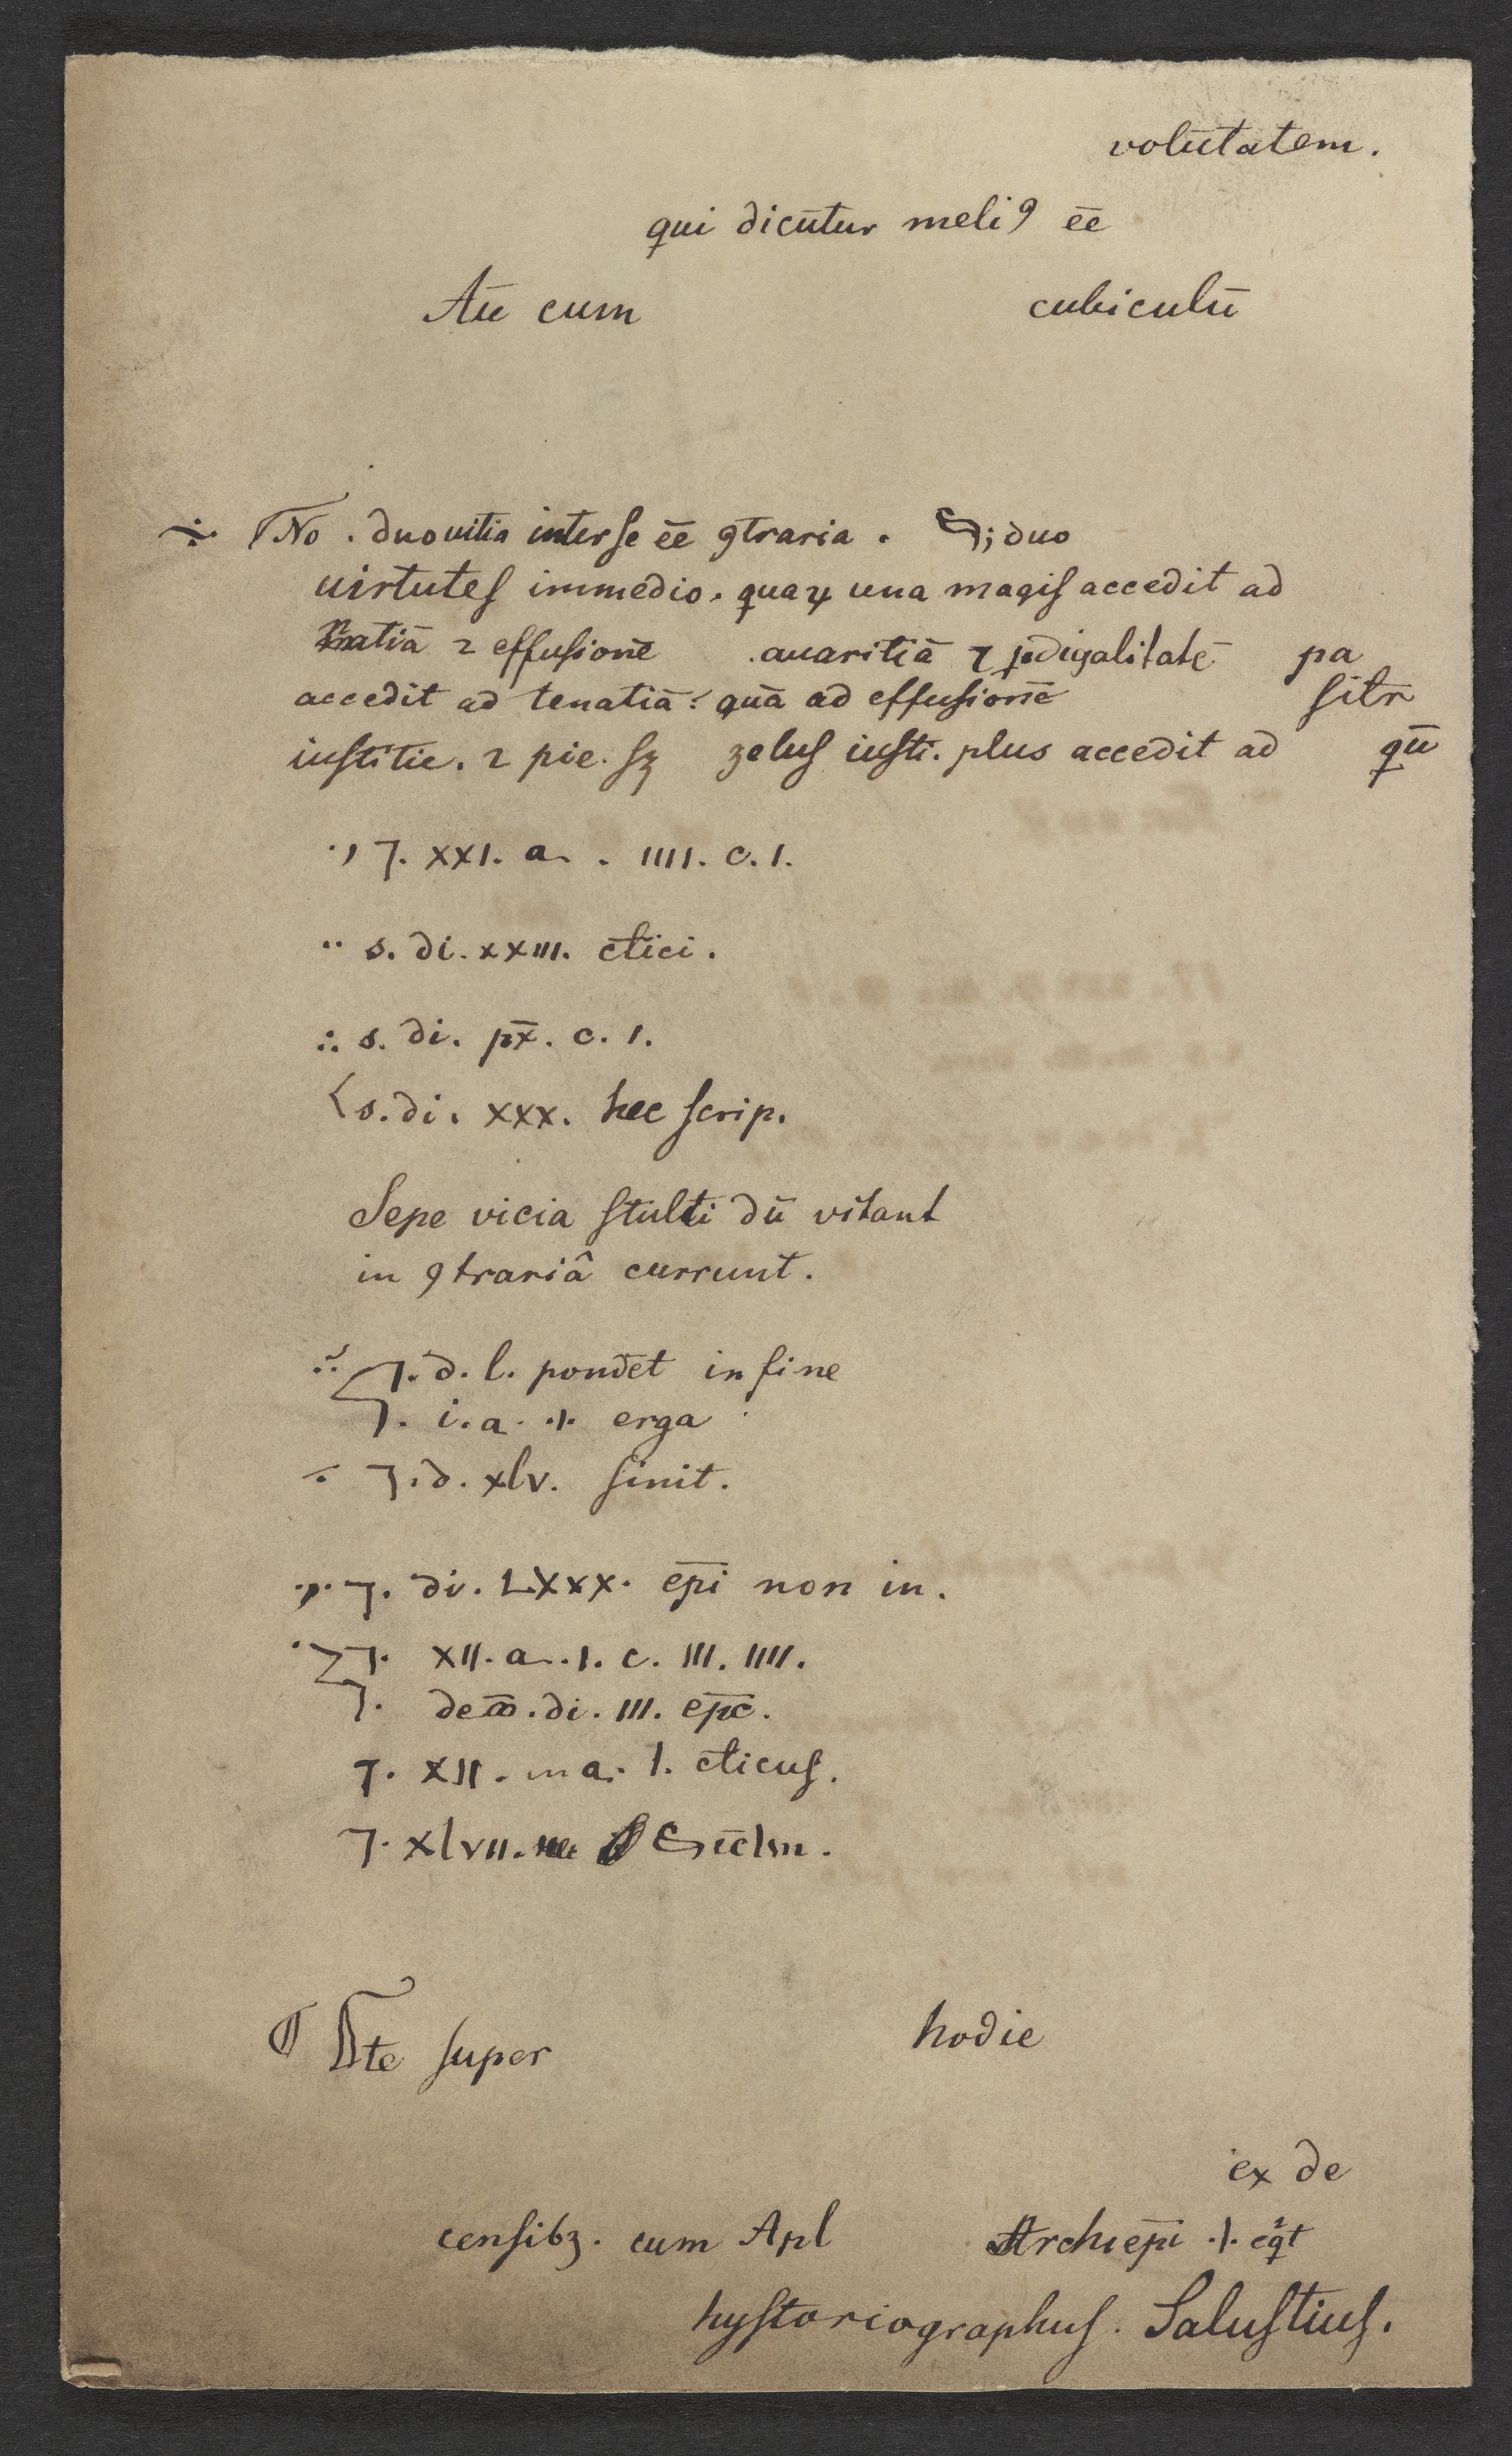 volūtatem.
qui dicūtur meli9 ēē
Aū cum cubiculū
÷ No. duo uitia inter se ēē 9traria. S; duo
uirtuteſ in medio. quaꝝ una magiſ accedit ad
effuſionē .auaritiā ⁊ ꝓdigalitatē pa
accedit ad tenatiā: quā ad effuſionē ſitr
iuſtitie. ⁊ pie. ſꝫ zeluſ iuſti. plus accedit ad qū
⁊. xxı. a. . ıııı. c. ı.
¨ s. di. xxııı. c̄tici.
∴ s. di. c. ı.
s. di. xxx. hec ſcrip.
Sepe vicia ſtulti dū vitant
in 9trariâ currunt.
⁊. d. l. pondet in fine
⁊. i. a. .ı. erga
⁊. d. xlv. ſinit.
⁊. di. LXXX. ep̄i non in.
⁊. xıı. a. .ı. c. ııı. ıııı.
⁊. de di. ııı. ep̄c.
⁊. xıı. a. ı. c̄ticuſ.
⁊. xlvıı.
ſuper hodie
ex de
cenſibꝫ. cum Apl Archiep̄i .ı.
hyſtoriographuſ. Saluſtiuſ.